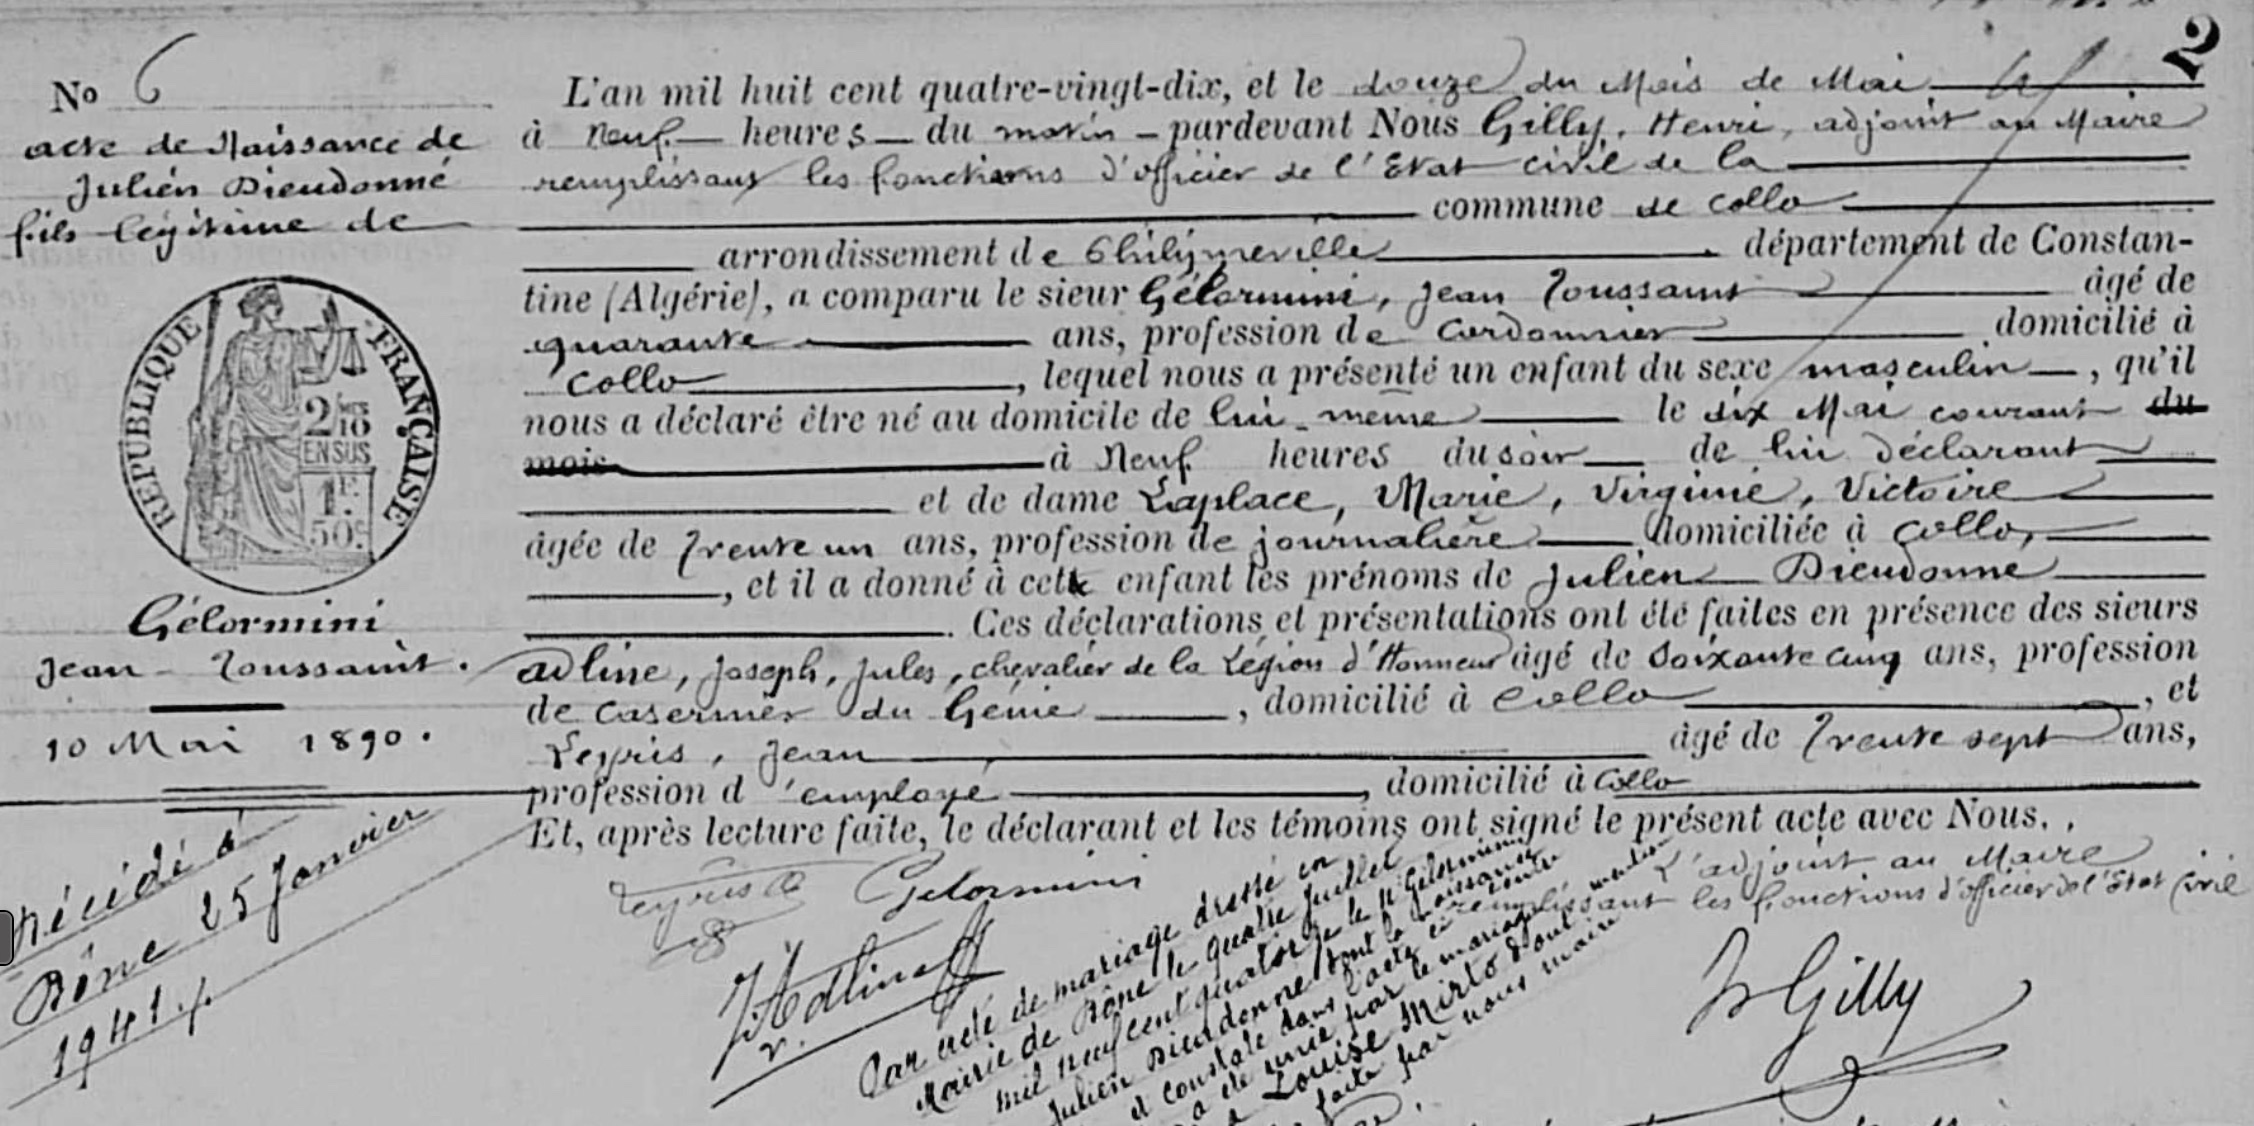 2
No 6
acte de Naissance de
Julien Dieudonné
fils légitime de
RÉPUBLIQUE FRANÇAISE
2/10
EN SUS
1F.
50c
Gélormini
Jean-Toussaint.
10 Mai 1890.
Décédé à
Bône 25 Janvier
1941
L'an mil huit cent quatre-vingt-dix, et le douze du Mois de Mai
à Neuf heures du matin - pardevant Nous Gilly, Henri, adjoint au Maire
remplissant les fonctions d'officier de l'Etat civil de la
commune de Collo
arrondissement de Philippeville département de Constan-
tine (Algérie), a comparu le sieur Gélormini, Jean Toussaint âgé de
quarante ans, profession de Cordonnier domicilié à
Collo, lequel nous a présenté un enfant du sexe masculin, qu'il
nous a déclaré être né au domicile de lui-même le dix Mai courant du
mois à Neuf heures du soir de lui déclarant
et de dame Laplace, Marie, Virginie, Victoire
âgée de trente un ans, profession de journalière domiciliée à Collo,
, et il a donné à cette enfant les prénoms de Julien Dieudonné
. Ces déclarations et présentations ont été faites en présence des sieurs
adline, Joseph, Jules, chevalier de la Légion d'Honneur âgé de Soixante cinq ans, profession
de casernier du Génie, domicilié à Collo, et
Leyris, Jean âgé de trente sept ans,
profession d'employé, domicilié à Collo
Et, après lecture faite, le déclarant et les témoins ont signé le présent acte avec Nous.
L'adjoint au Maire
remplissant les fonctions d'officier de l'Etat Civil
Leyris Gelormini
J. Adline
H Gilly
Par acte de mariage dressé en
Mairie de Bône le quatre Juillet
mil neuf cent quatorze le Sr Gelormini
Julien Dieudonné dont la naissance
est constatée dans l'acte ci contre
a été unie par le mariage
Louise Mirto dont mention
faite par nous maire